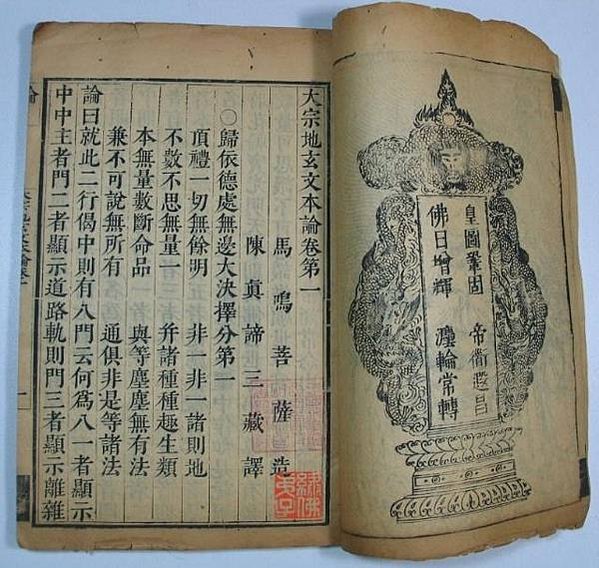 皇圖鞏固　帝衜遐昌
佛日增輝　灋輪常轉
大宗地玄文本論卷第一
馬鳴菩薩造
陳眞諦三藏譯
○歸依德處無邊大決擇分第一
頂禮一切無餘明　非一非一諸則地
不數不思無量一　幷諸種種趣生類
本無量數斷命品　與等塵塵無有法
兼不可說無所有　通俱非是等諸法
論曰就此二行偈中則有八門云何爲八一者顯示
中中主者門二者顯示道路軌則門三者顯示離雜